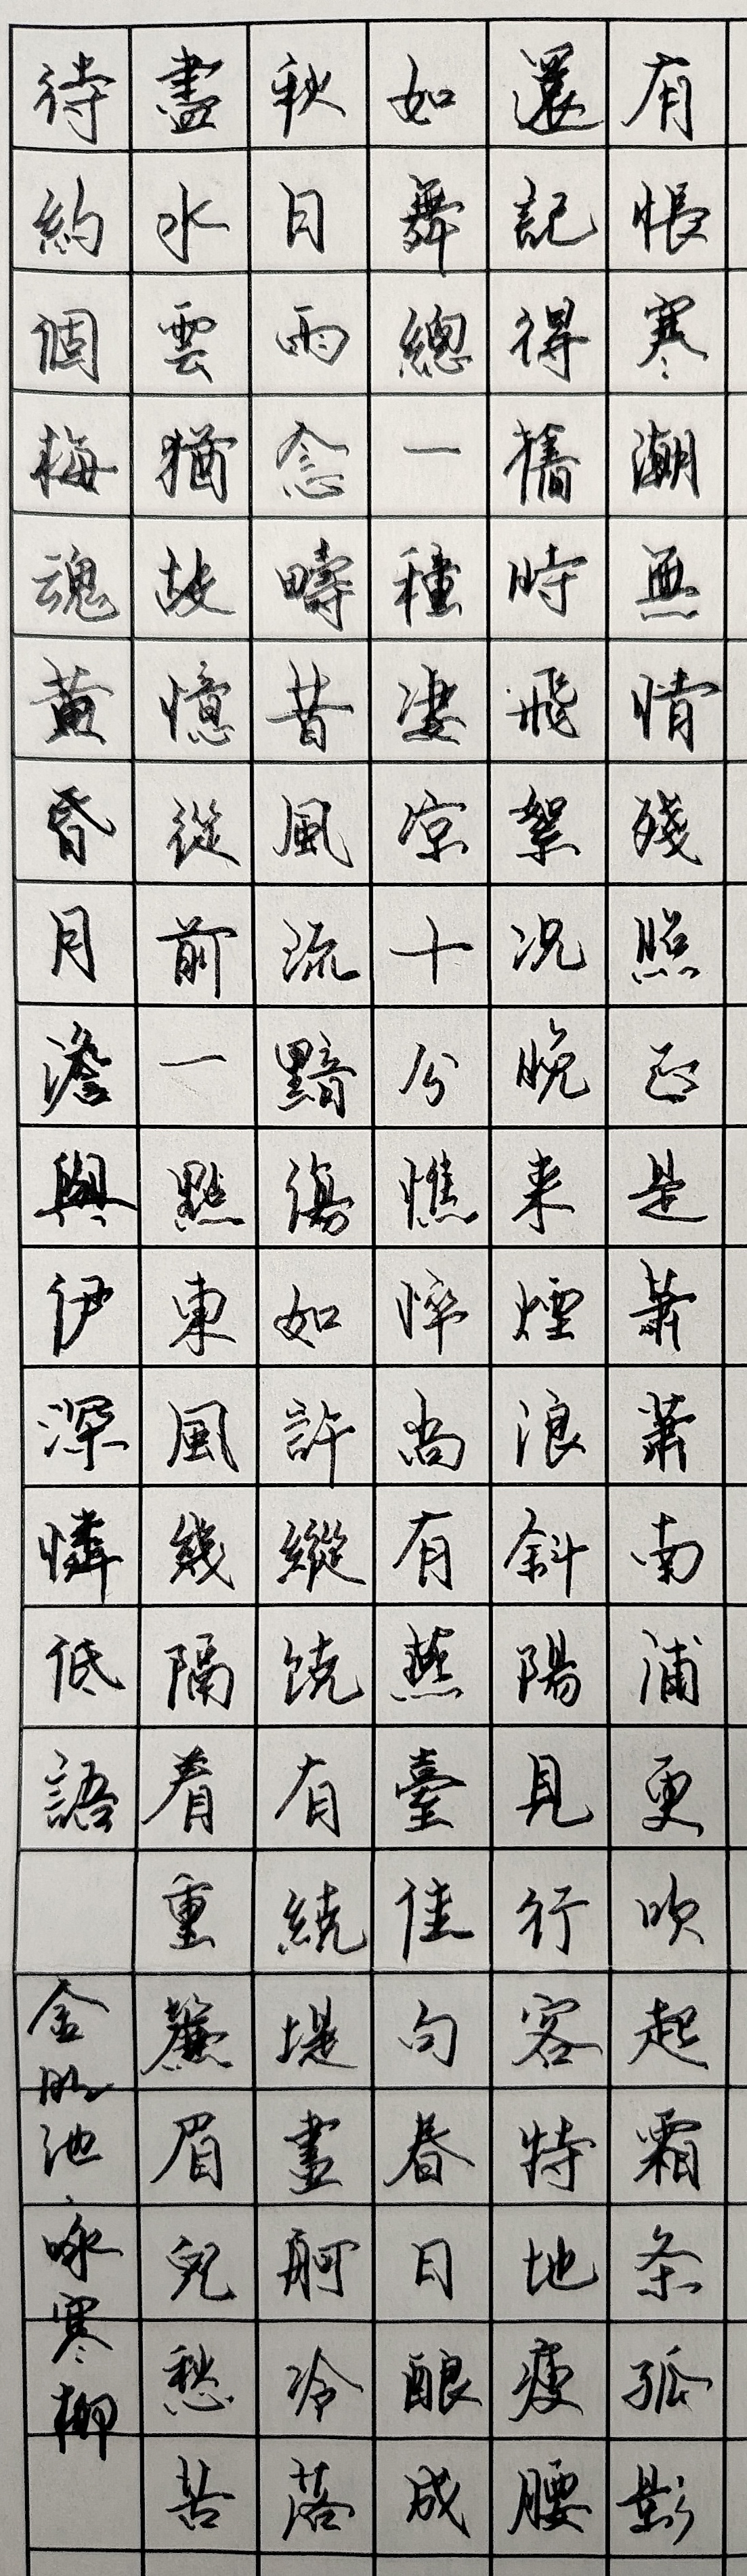 有悵寒潮無情殘照正是蕭蕭南浦更吹起霜条孤影
還記得舊時飛絮况晚来煙浪斜陽見行客特地瘦腰
如舞總一種凄凉十分憔悴尚有燕臺佳句春日酿成
秋日雨念疇昔風流黯傷如許縱饶有繞堤畫舸冷落
盡水雲猶故憶從前一點東風幾隔着重簾眉兒愁苦
待約個梅魂黄昏月澹與伊深憐低語
金明池·咏寒柳